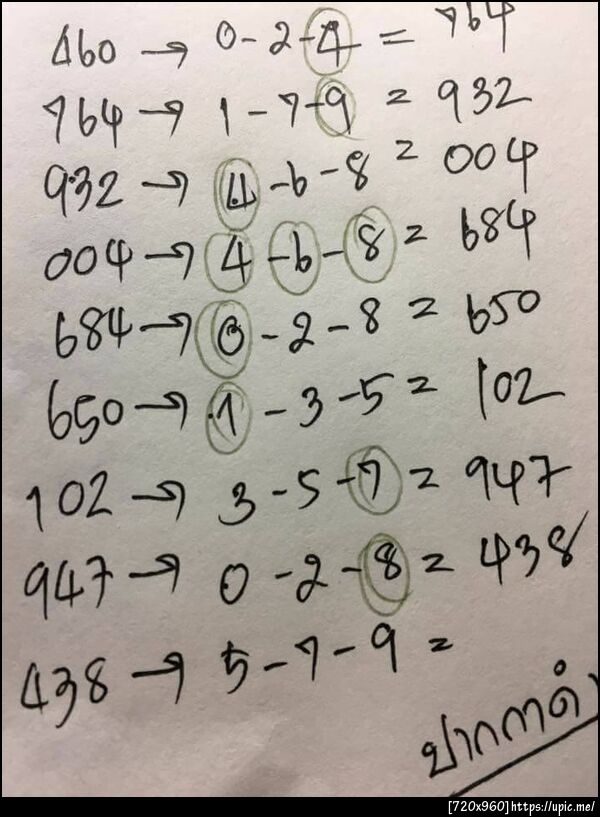 460 → 0-2-4 = 764
764 → 1-7-9 = 932
932 → 4-6-8 = 004
004 → 4-6-8 = 684
684 → 0-2-8 = 650
650 → 1-3-5 = 102
102 → 3-5-7 = 947
947 → 0-2-8 = 438
438 → 5-7-9 =
ปากกาดำ
[720x960] https://upic.me/